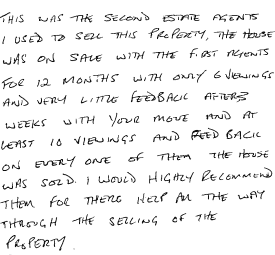 THIS WAS THE SECOND ESTATE AGENTS
I USED TO SELL THIS PROPERTY, THE HOUSE
WAS ON SALE WITH THE FIRST AGENTS
FOR 12 MONTHS WITH ONLY 6 VIEWINGS
AND VERY LITTLE FEEDBACK AFTER 3
WEEKS WITH YOUR MOVE AND AT
LEAST 10 VIEWINGS AND FEED BACK
ON EVERY ONE OF THEM THE HOUSE
WAS SOLD. I WOULD HIGHLY RECOMMEND
THEM FOR THERE HELP ALL THE WAY
THROUGH THE SELLING OF THE
PROPERTY.